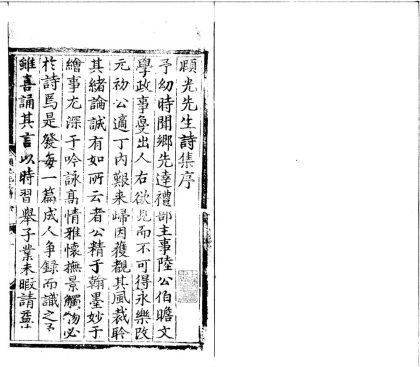 頤光先生詩集序
予幼時聞鄉先達禮部主事陸公伯瞻文
學政事夐出人右欲見而不可得永樂改
元初公適丁內艱来歸因獲覩其風裁聆
其緒論誠有如所云者公精于翰墨妙于
繪事尤深于吟詠高情雅懷撫景觸物必
於詩焉是發每一篇成人争録而識之予
雖喜誦其言以時習舉子業未暇請益